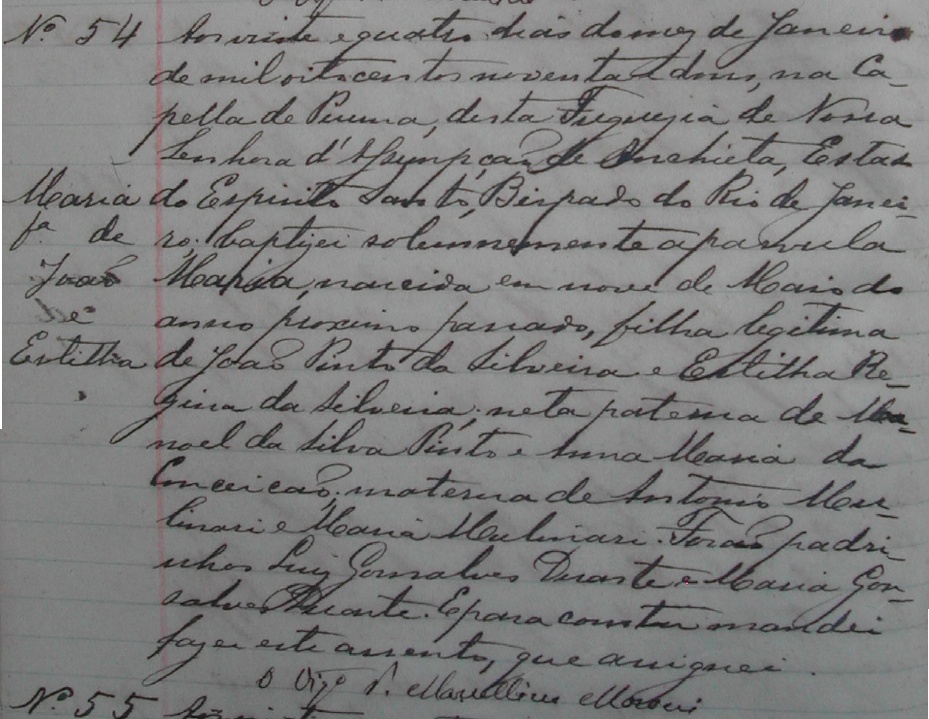 Nº 54 Aos vinte e quatro dias do mez de Janeiro
de mil oitocentos noventa e dous, na Ca-
pella de Piuma, desta Freguezia de Nossa
Senhora d'Assumpção de Anchieta, Esta-
Maria do Espirito Santo, Bispado do Rio de Janei-
fª de ro; baptizei solemnemente a parvula
João Maria, nascida em nove de Maio do
e anno proximo passado, filha legitima
Estitha de João Pinto da Silveira e Estitha Re-
gina da Silveira; neta paterna de Ma-
noel da Silva Pinto e Anna Maria da
Conceicão; materna de Antonio Mu-
linari e Maria Mulinari. Forão padri-
nhos Luiz Gonsalves Duarte e Maria Gon-
salves Duarte. E para constar mandei
fazer este assento, que assignei.
O Vigº P. Marcellino Moroni
Nº 55